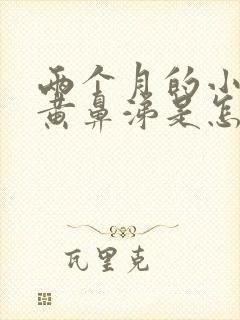 两个月的小
黄鼻涕是怎
瓦里克